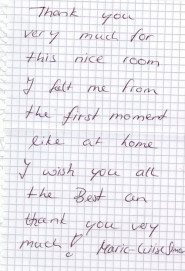 Thank you
very much for
this nice room
I felt me from
the first moment
like at home
I wish you all
the Best an
thank you very
much! Marie-Luise